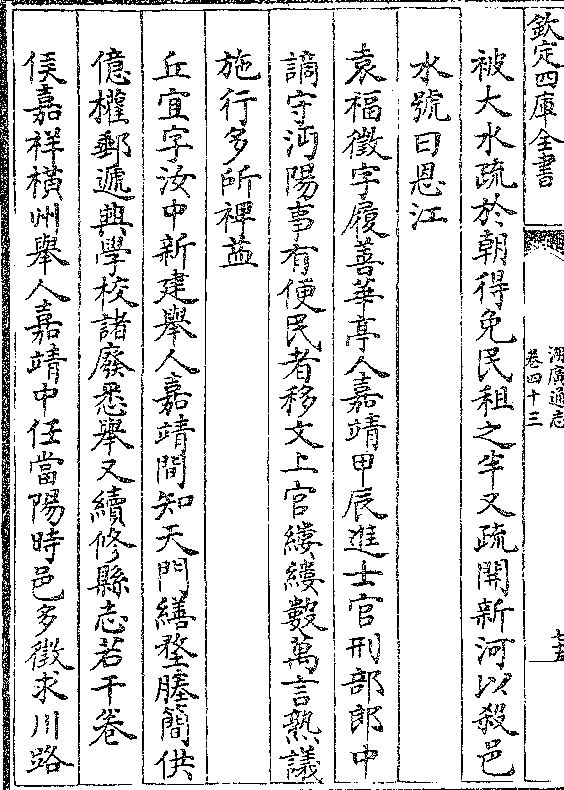 欽定四庫全書
湖廣通志
卷四十三
七十五
被大水疏於朝得免民租之半又疏開新河以殺邑
水號曰恩江
袁福徵字履善華亭人嘉靖甲辰進士官刑部郎中
謫守沔陽事有便民者移文上官縷縷數萬言熟議
施行多所裨益
丘宜字汝中新建舉人嘉靖間知天門繕堊塍簡供
億權郵遞興學校諸廢悉舉又續修縣志若干卷
侯嘉祥橫州舉人嘉靖中任當陽時邑多徵求川路